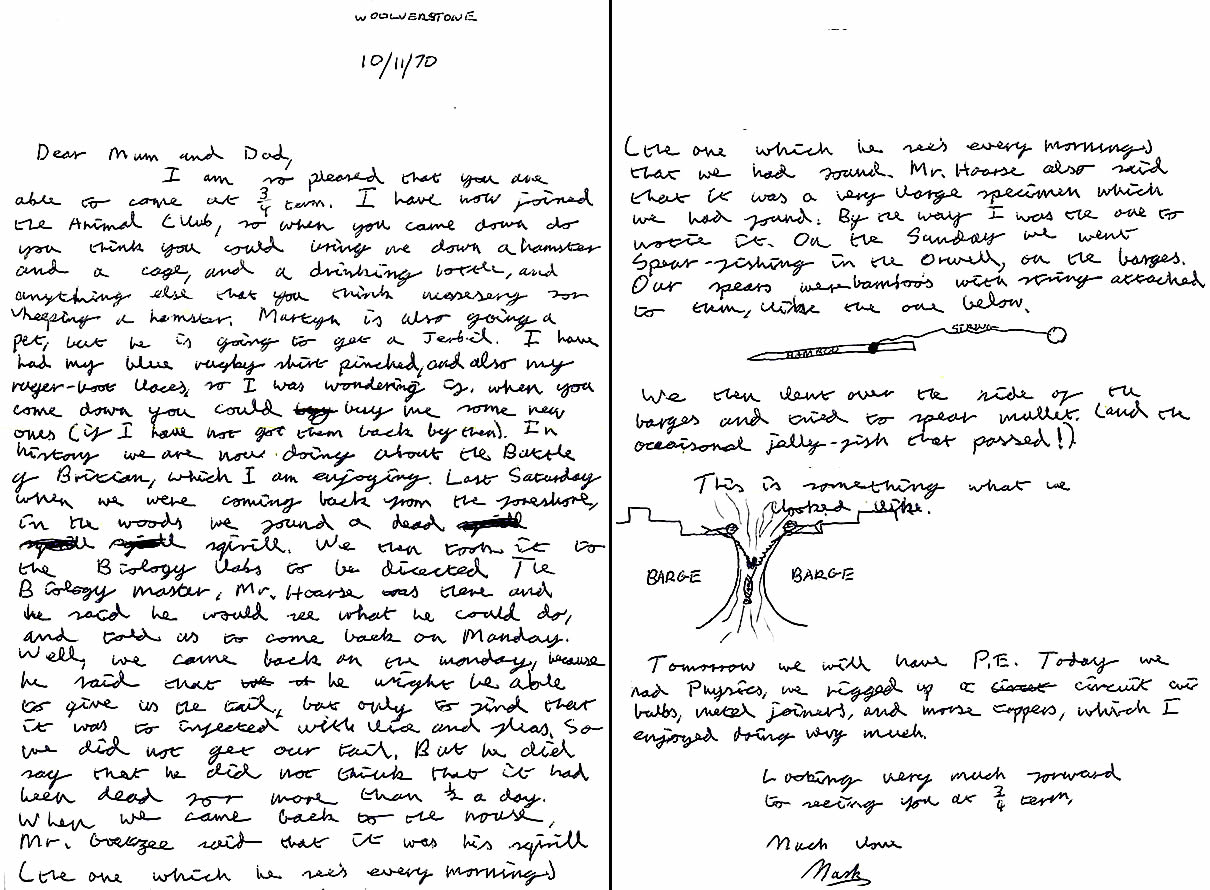 WOOLVERSTONE
10/11/70
Dear Mum and Dad,
I am so pleased that you are
able to come at 3/4 term. I have now joined
the Animal Club, so when you came down do
you think you could bring me down a hamster
and a cage, and a drinking bottle, and
anything else that you think nessesery for
keeping a hamster. Martyn is also going a
pet, but he is going to get a Jerbil. I have
had my blue rugby shirt pinched, and also my
ruger-boot laces, so I was wondering if, when you
come down you could buy me some new
ones (if I have not got them back by then). In
history we are now doing about the Battle
of Britian, which I am enjoying. Last Saturday
when we were coming back from the foreshore,
in the woods we found a dead
sqirill. We then took it to
the Biology labs to be disected The
Biology master, Mr. Hoarse was there and
he said he would see what he could do,
and told us to come back on Monday.
Well, we came back on the monday, because
he said that he might be able
to give us the tail, but only to find that
it was to infected with lice and fleas. So
we did not get our tail. But he did
say that he did not think that it had
been dead for more than ½ a day.
When we came back to the house,
Mr. said that it was his sqirill
(the one which he see's every morning)
(the one which he see's every morning)
that we had found. Mr. Hoarse also said
that it was a very large specimen which
we had found. By the way I was the one to
notice it. On the Sunday we went
Spear-fishing in the Orwell, on the barges.
Our spears were bamboo's with string attached
to them, like the one below.
STRING
BAMBOO
We then leant over the side of the
barges and tried to spear mullet. (and the
occaisonal jelly-fish that passed!)
This is something what we
looked like.
BARGE BARGE
Tomorrow we will have P.E. Today we
had Physics, we rigged up a circuit with
bulbs, metal joiners, and morse tappers, which I
enjoyed doing very much.
Looking very much forward
to seeing you at 3/4 term,
Much love
Mark